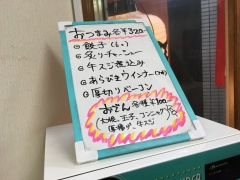 おつまみ各¥320-
◎餃子(6ヶ)
◎炙りチャーシュー
◎牛スジ煮込み
◎あらびきウインナー(4本)
◎厚切りベーコン
おでん 各種¥100
大根、玉子、コンニャク
厚揚げ、牛スジ